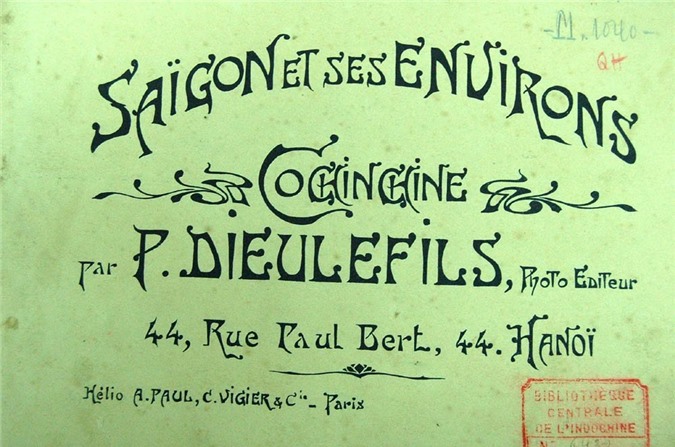 M. 1040
QH
SAÏGON ET SES ENVIRONS
COCHINCHINE
Par P. DIEULEFILS, PHOTO EDITEUR
44, Rue Paul Bert, 44. HANOÏ
Hélio A. PAUL, C. VIGIER & Cie - Paris
BIBLIOTHEQUE
CENTRALE
DE L'INDOCHINE
N°